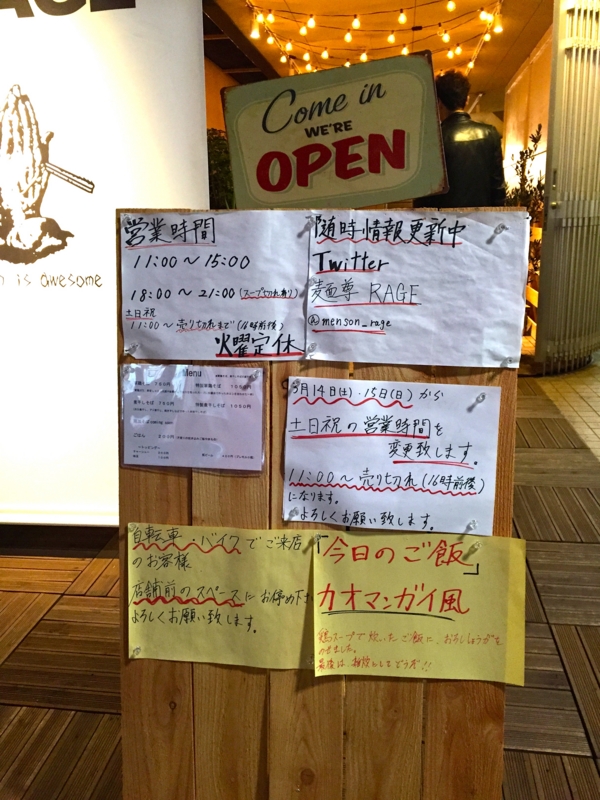 n is awesome
Come in
WE'RE
OPEN
営業時間
11:00〜15:00
18:00〜21:00(スープ切れ有り)
土日祝
11:00〜売り切れまで(16時前後)
火曜定休
随時情報更新中
Twitter
麺尊 RAGE
@menson_rage
Menu
3月14日(土)・15日(日)から
土日祝の営業時間を
変更致します。
11:00〜売り切れ(16時前後)
になります。
よろしくお願い致します。
自転車・バイクでご来店
のお客様
店舗前のスペースにお停め下さ
よろしくお願い致します。
「今日のご飯」
カオマンガイ風
鶏スープで炊いたご飯に、おろししょうがを
のせました。
最後は雑炊としてどうぞ!!